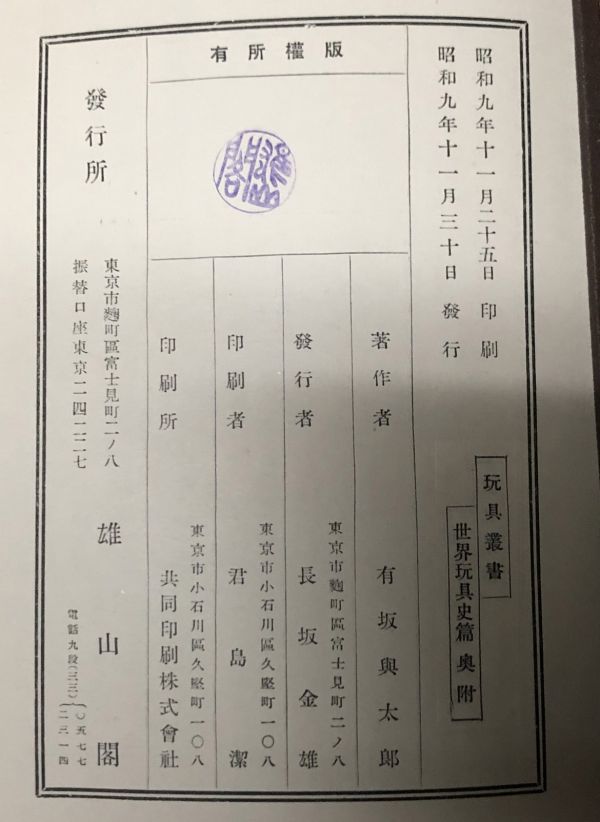 昭和九年十一月二十五日 印刷
昭和九年十一月三十日 發行
玩具叢書
世界玩具史篇 奥附
版權所有
著作者 有坂與太郎
東京市麴町區富士見町二ノ八
發行者 長坂金雄
東京市小石川區久堅町一〇八
印刷者 君島潔
東京市小石川區久堅町一〇八
印刷所 共同印刷株式會社
發行所
東京市麴町區富士見町二ノ八
振替口座東京二四二二七
雄山閣
電話九段(三三)
〇五七七
二三一四